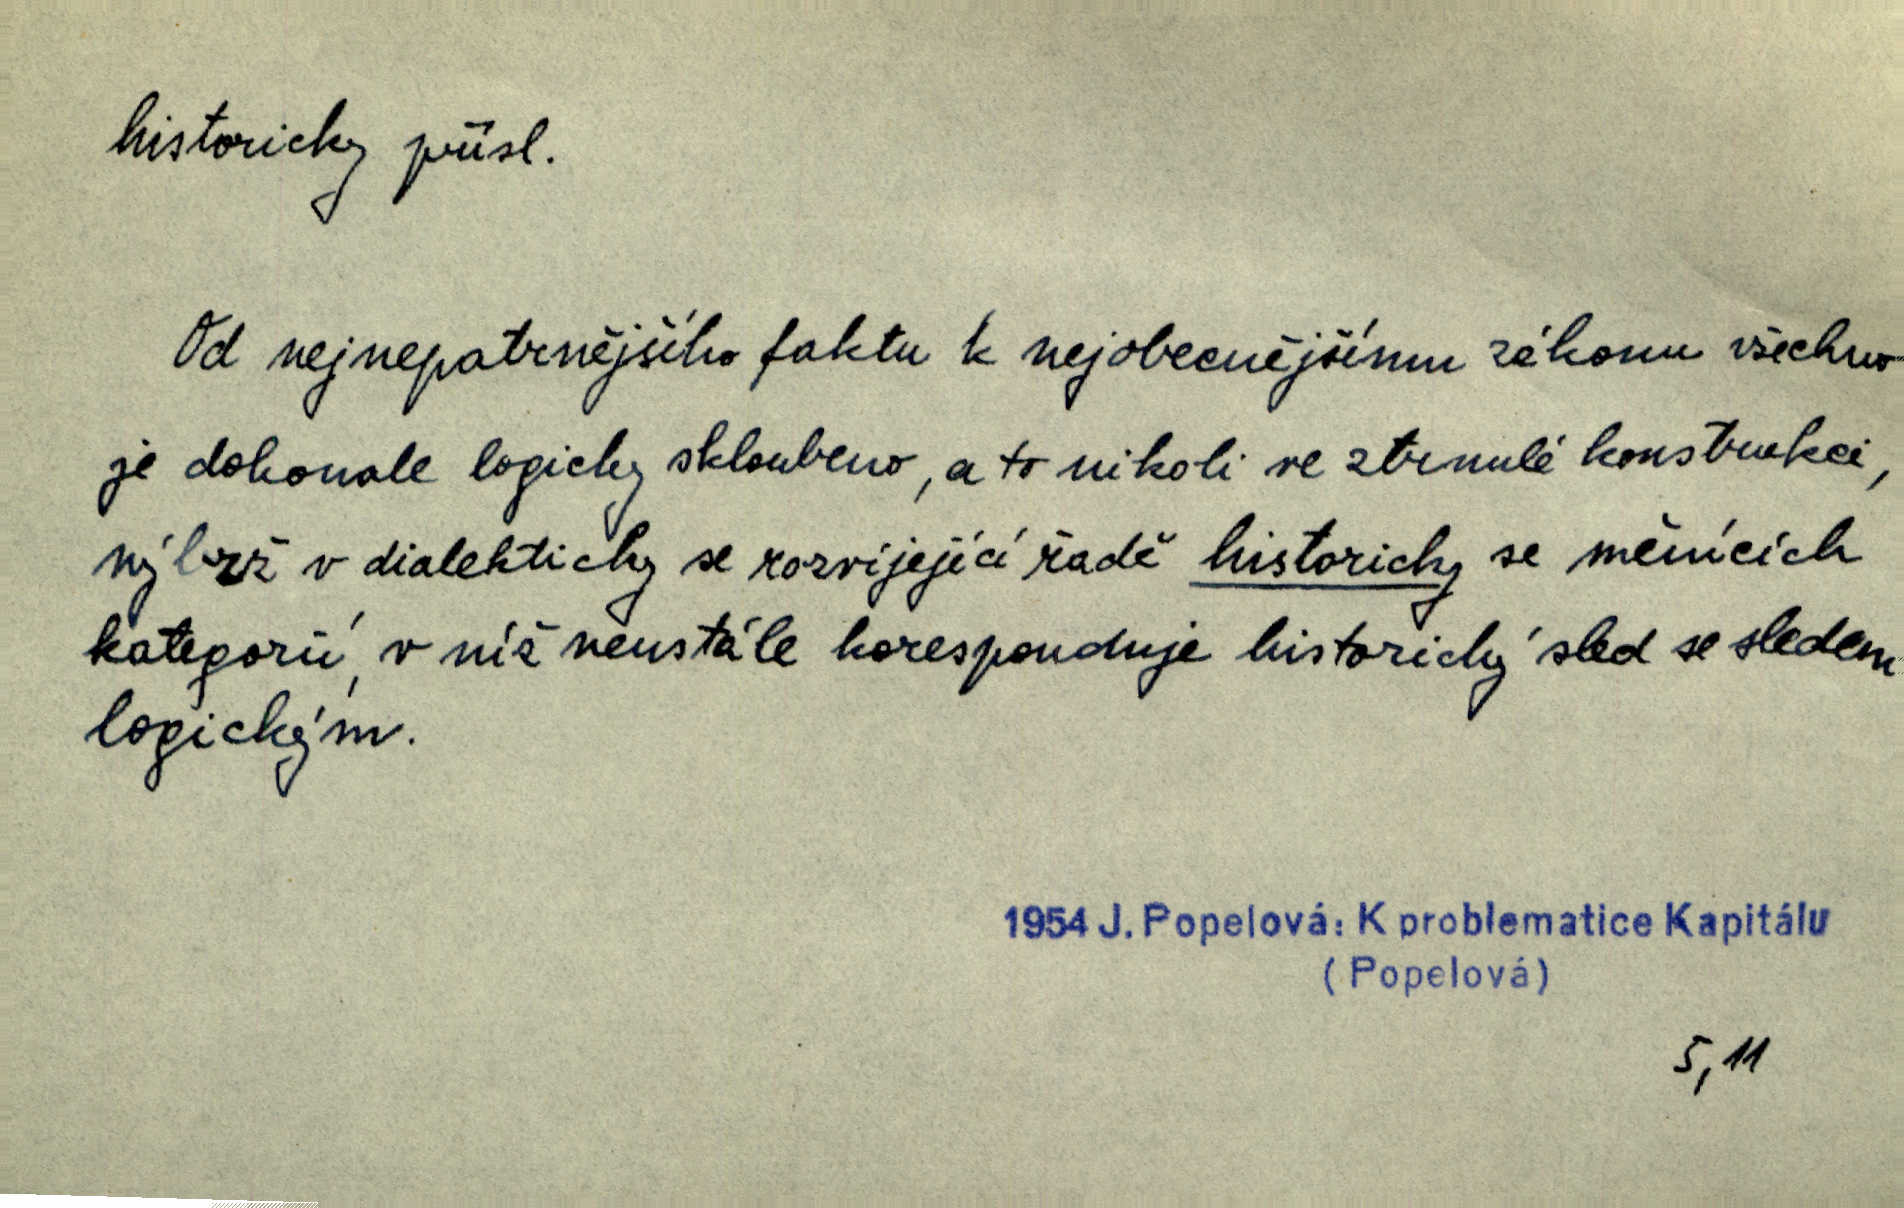 historicky přísl.
Od nejnepatrnějšího faktu k nejobecnějšímu zákonu všechno
je dokonale logicky skloubeno, a to nikoli ve ztrnulé konstrukci,
nýbrž v dialekticky se rozvíjející řadě historicky se měnících
kategorií, v níž neustále koresponduje historický sled se sledem
logickým.
1954 J. Popelová: K problematice Kapitálu
(Popelová)
5,11